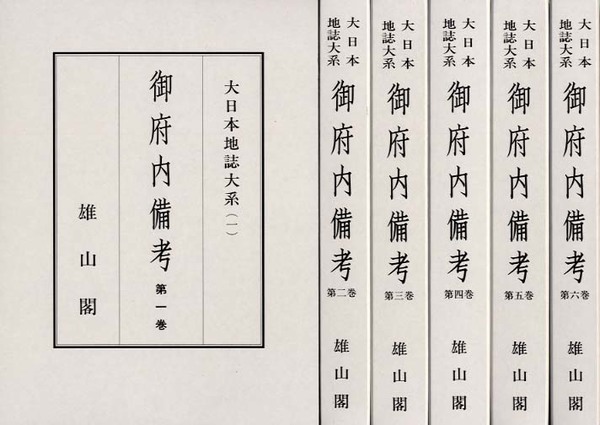 大日本地誌大系(一)
御府内備考 第一巻
雄山閣
大日本
地誌大系
御府内備考
第二巻
雄山閣
大日本
地誌大系
御府内備考
第三巻
雄山閣
大日本
地誌大系
御府内備考
第四巻
雄山閣
大日本
地誌大系
御府内備考
第五巻
雄山閣
大日本
地誌大系
御府内備考
第六巻
雄山閣